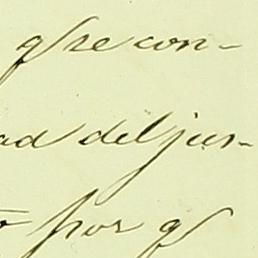 qe se con-
ad del jus-
to por q